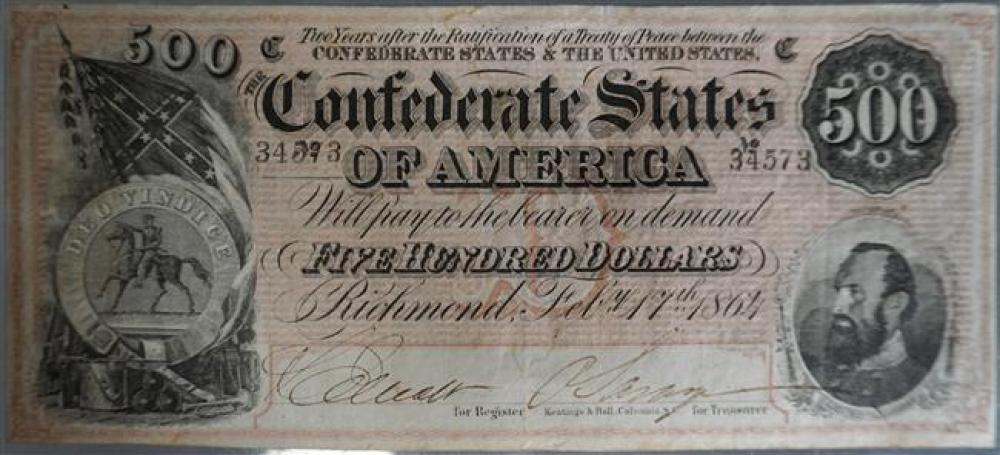 500
C
Two Years after the Ratification of a Treaty of Peace between the
C
CONFEDERATE STATES & THE UNITED STATES,
THE
Confederate States
500
No
34573
No
34573
OF AMERICA
DEO VINDICE
Will pay to the bearer on demand
FIVE HUNDRED DOLLARS
Richmond, Feby. 17th, 1864
for Register
Keatinge & Ball, Columbia, S.C.
for Treasurer